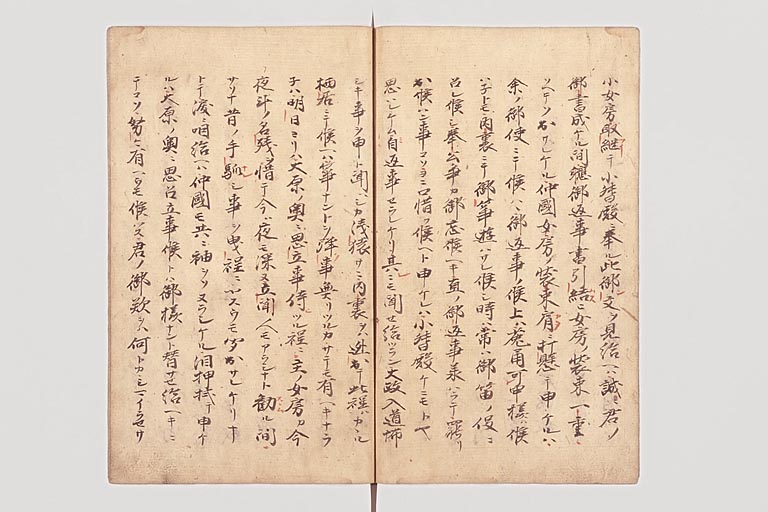 小女房取継テ小督殿ニ奉ル此御文ヲ見給ヘハ誠ニ君ノ
御書成ケル間軈御返事書引結ヒ女房ノ装束一重ネ
ソヘテソ出サレケル仲國女房ノ装束ヲ肩ニ打懸テ申ケルハ
余ノ御使ニテ候ハヽ御返事ノ候上ハ兎角可申様ハ候
ハ子トモ内裏ニテ御箏遊ハサレ候シ時ハ常ハ御笛ノ役ニ
召レ候シ奉公争カ御忘候ヘキ直ノ御返事承ハラテ罷リ
出候ハン事コソヨニ口惜フ候ヘト申ケレハ小督殿ケニモトヤ
思レケム自返事セラレケリ其ニモ聞セ給ツラン大政入道怖
シキ事ヲ申ト聞シカハ浅猿サニ内裏ヲ逃出テ此程ハカヽル
栖居ニテ候ヘハ箏ナントヲ弾事無リツルカサテモ有ヘキナラ
子ハ明日ヨリハ大原ノ奥ニ思立事侍ツル程ニ主ノ女房カ今
夜斗ノ名残ヲ惜テ今ハ夜モ深ヌ立聞人モアラシナト勧ル間
サソナ昔ノ手馴シ事ヲ曳程ニヤスウモ聞出サレケリナ
トテ涙ニ咽給ヘハ仲國モ共ニ袖ヲソヌラシケル泪押拭テ申ケ
ルハ大原ノ奥ニ思召立事候トハ御様ナント替サセ給ヘキニ
テコソ努々有ヘクモ候ハス君ノ御歎ヲハ何トカシマイラセサ